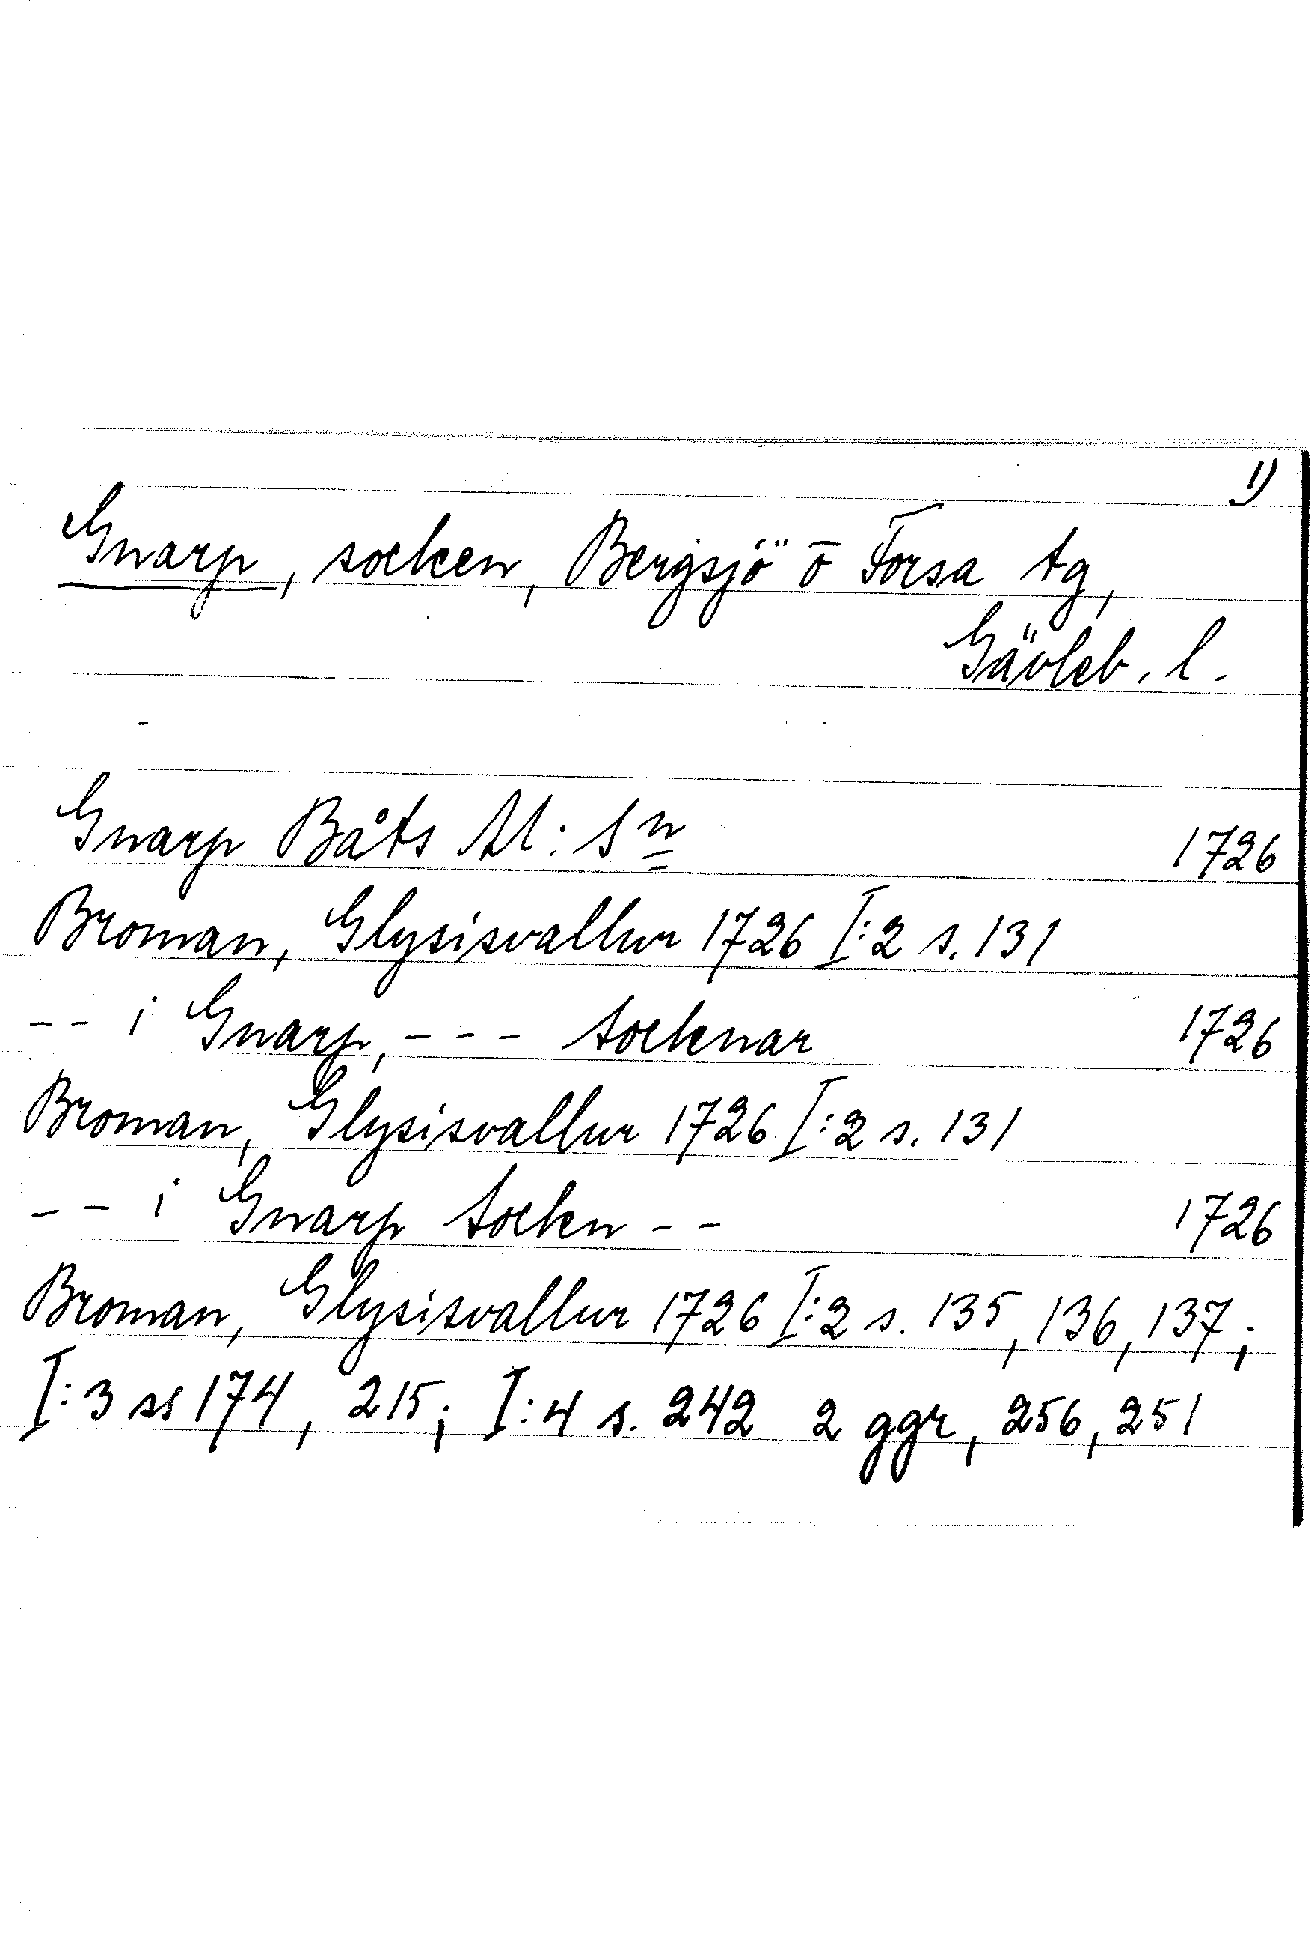 1)
Gnarp, socken, Bergsjö o Forsa tg,
Gävleb. l.
Gnarp Båts M: Sn 1726
Broman, Glysisvallur 1726 I:2 s. 131
-- i Gnarp, --- Socknar 1726
Broman, Glysisvallur 1726 I:2 s. 131
-- i Gnarp Sockn -- 1726
Broman, Glysisvallur 1726 I:2 s. 135, 136, 137;
I:3 ss 174, 215; I:4 s. 242 2 ggr, 256, 251